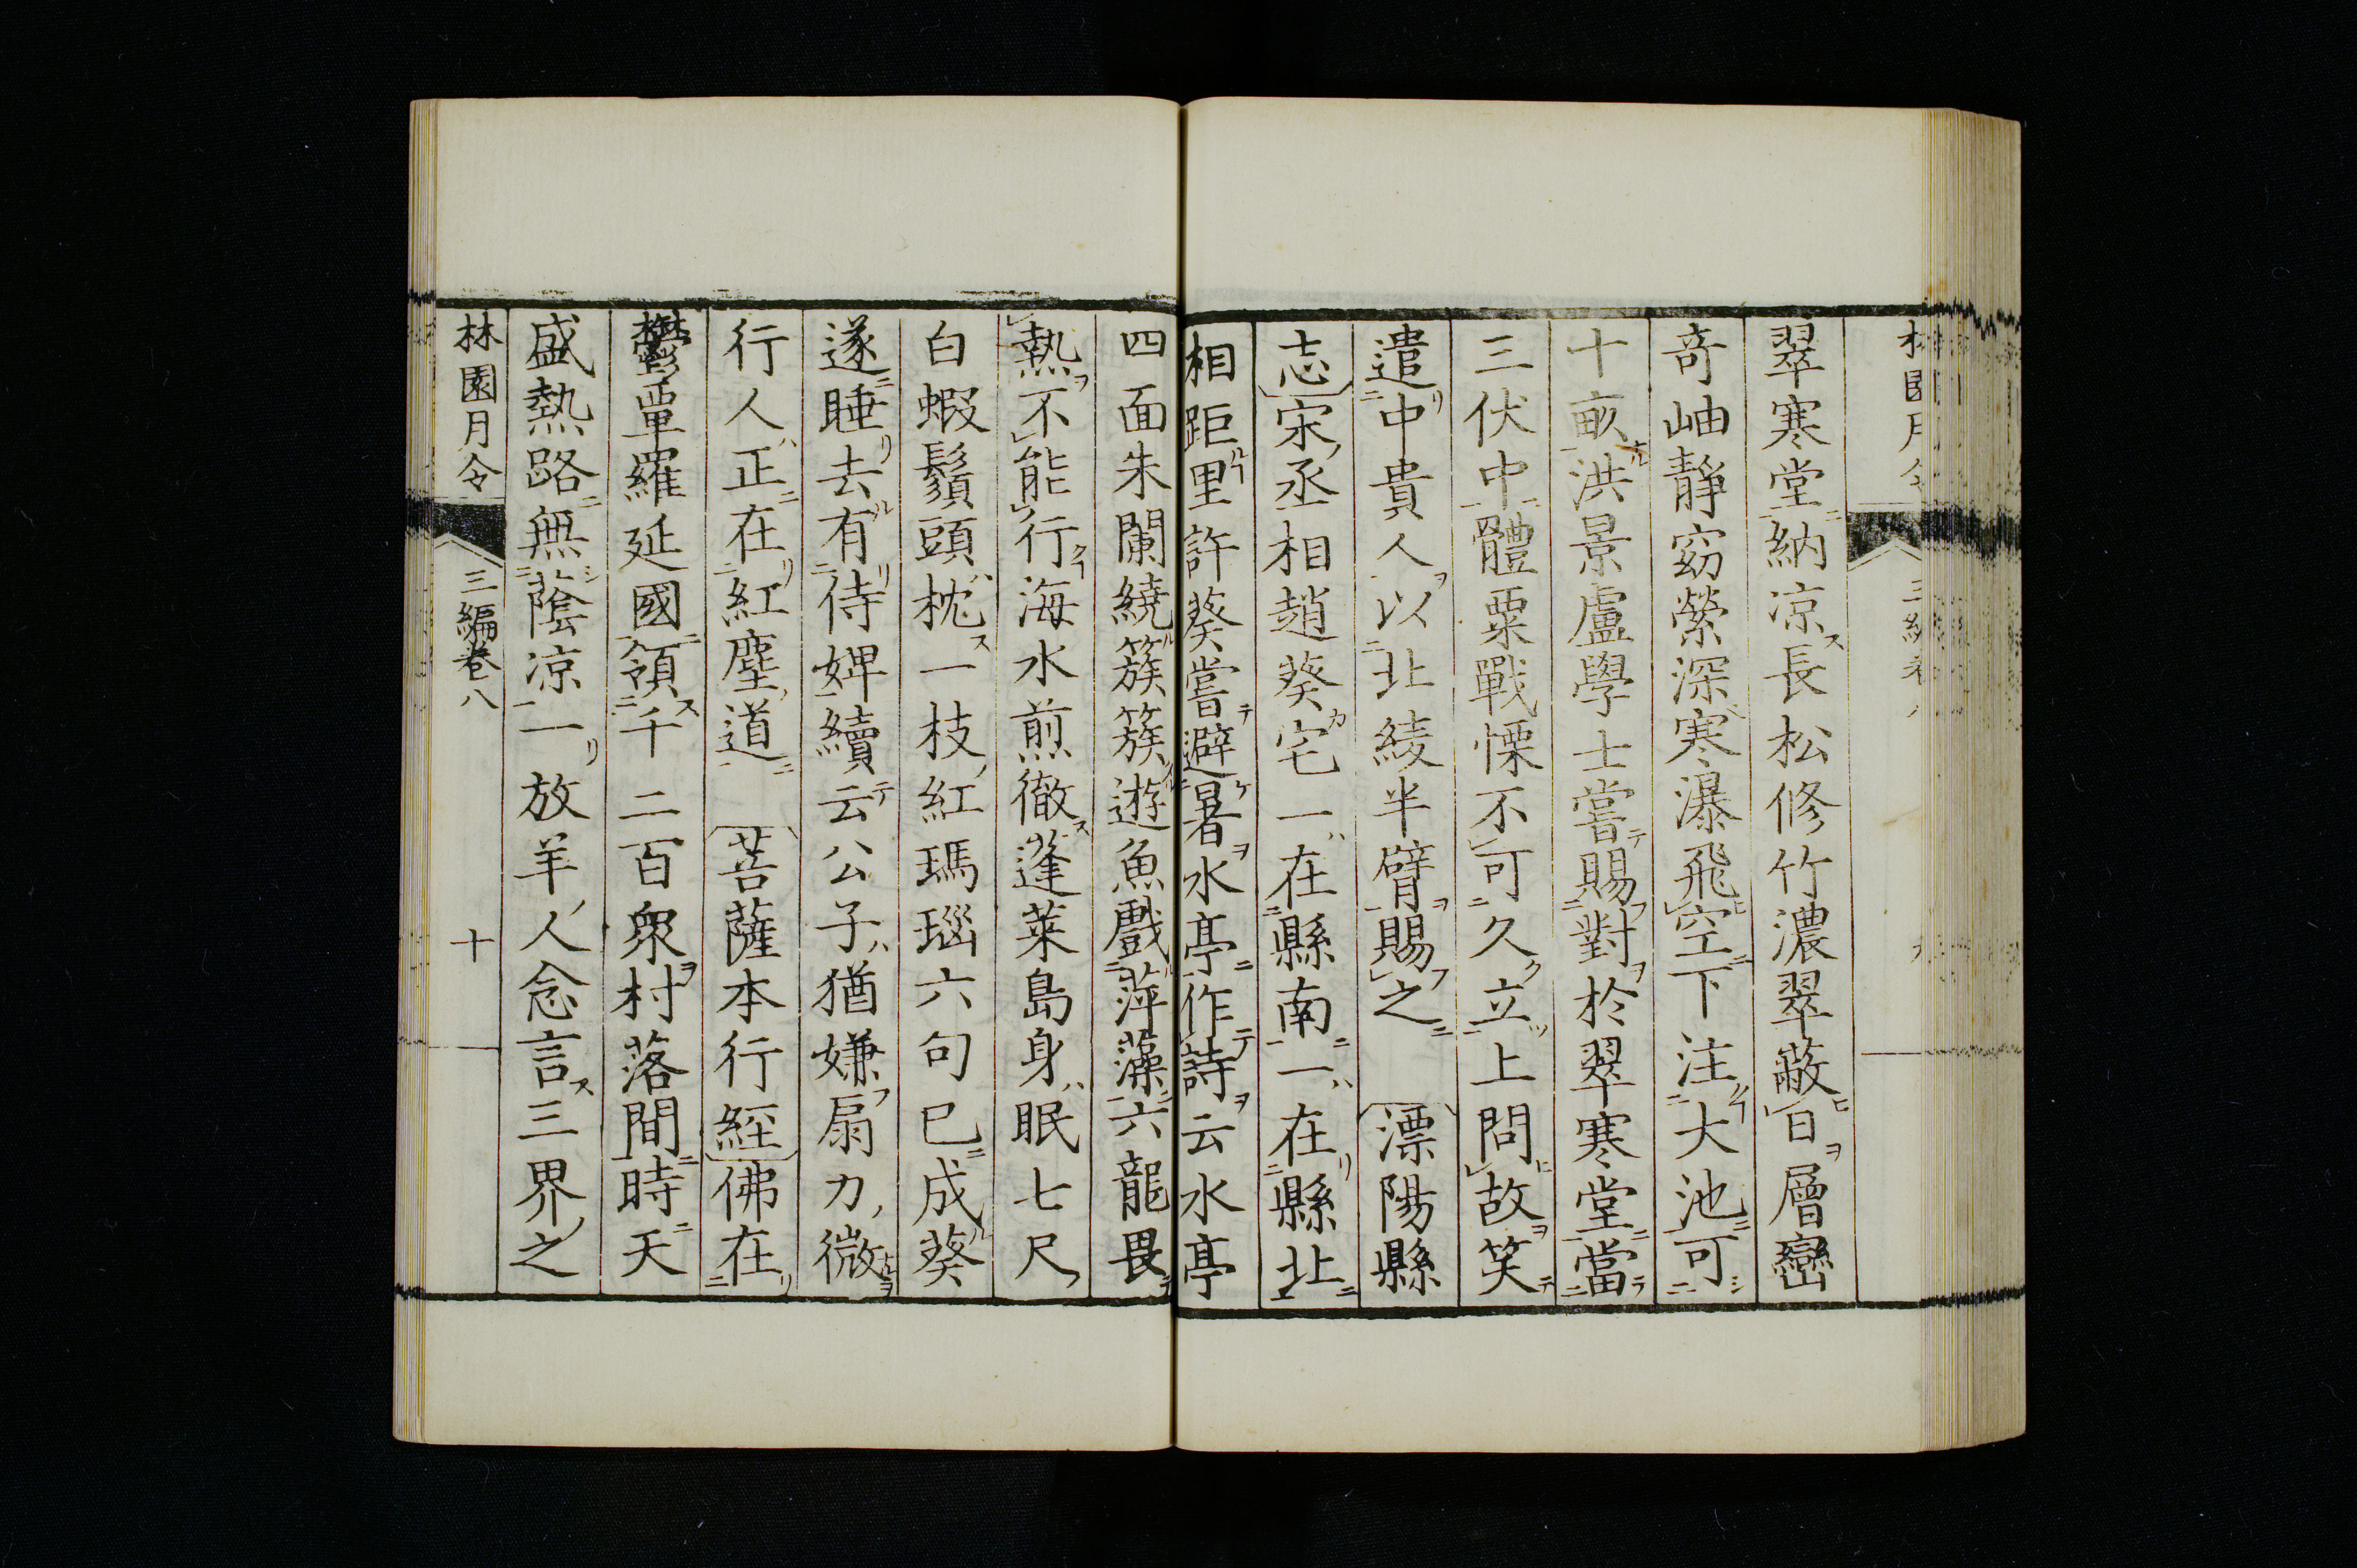 翠寒堂納涼長松修竹濃翠蔽日層巒
奇岫靜窈縈深寒瀑飛空下注大池可
十畝洪景盧學士嘗賜對於翠寒堂當
三伏中體粟戰慄不可久立上問故笑
遣中貴人以北綾半臂賜之　漂陽縣
志宋丞相趙葵宅一在縣南一在縣北
相距里許葵嘗避暑水亭作詩云水亭
四面朱闌繞簇簇遊魚戲萍藻六龍畏
熱不能行海水煎徹蓬萊島身眠七尺
白蝦鬚頭枕一枝紅瑪瑙六句已成葵
遂睡去有待婢續云公子猶嫌扇力微
行人正在紅塵道　菩薩本行經佛在
鬱單羅延國領千二百眾村落間時天
盛熱路無蔭涼一放羊人念言三界之
林園月令　三編卷八　十